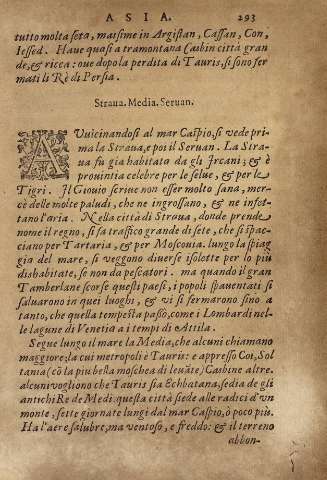 ASIA. 293
tutto molta seta, massime in Argistan, Cassan, Con,
Iessed. Haue quasi a tramontana Casbin città gran
de, & ricca: oue dopo la perdita di Tauris, si sono fer
mati li Rè di Persia.
Straua. Media. Seruan.
AVuicinandosi al mar Caspio, si vede pri-
ma la Straua, e poi il Seruan. La Stra-
ua fu gia habitata da gli Ircani; & è
prouintia celebre per le selue, & per le
Tigri. Il Giouio scriue non esser molto sana, mer-
cè delle molte paludi, che ne ingrossano, & ne infet-
tano l'aria. Nella città di Straua, donde prende
nome il regno, si fa traffico grande di sete, che si spac-
ciano per Tartaria, & per Moscouia. lungo la spiag
gia del mare, si veggono diuerse isolette per lo più
dishabitate, se non da pescatori. ma quando il gran
Tamberlane scorse questi paesi, i popoli spauentati si
saluarono in quei luoghi, & vi si fermarono sino a
tanto, che quella tempesta passò, come i Lombardi nel-
le lagune di Venetia a i tempi di Attila.
Segue lungo il mare la Media, che alcuni chiamano
maggiore: la cui metropoli è Tauris: e appresso Coi, Sol
tania (cō la piu bella moschea di leuāte) Casbin e altre.
alcuni vogliono che Tauris sia Echbatana, sedia de gli
antichi Re de Medi: questa città siede alle radici d'vn
monte, sette giornate lungi dal mar Caspio, ò poco più.
Ha l'aere salubre, ma ventoso, e freddo: & il terreno
abbon-